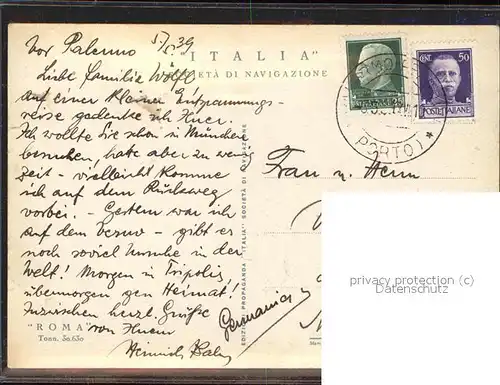 Vor Palermo 5/5.39
"ITALIA"
SOCIETÀ DI NAVIGAZIONE
Liebe Familie Wolff
Auf einer kleinen Entspannungs-
reise gedenke ich Ihrer.
Ich wollte Sie schon in München
besuchen, habe aber zu wenig
Zeit - vielleicht komme
ich auf dem Rückweg
vorbei. - Gestern war ich
auf dem Vesuv - gibt es
noch soviel Unruhe in der
Welt! Morgen in Tripolis,
übermorgen gen Heimat!
Inzwischen herzl. Grüße
von Ihrem
Heinrich
"ROMA"
Tonn. 30.630
EDIZIONE PROPAGANDA "ITALIA" SOCIETÀ DI NAVIGAZIONE
CENT. 50
POSTE ITALIANE
PORTO
Frau u. Herrn
Germania
privacy protection (c)
ansichtskarten-center.de